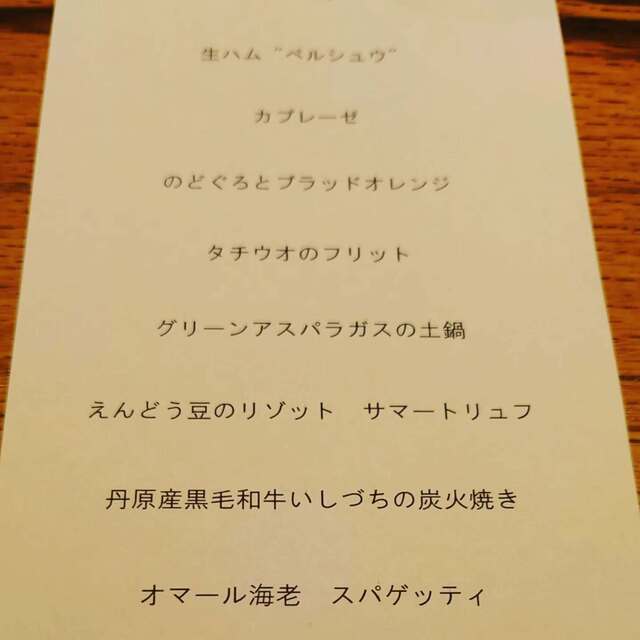 生ハム “ペルシュウ”
カプレーゼ
のどぐろとブラッドオレンジ
タチウオのフリット
グリーンアスパラガスの土鍋
えんどう豆のリゾット　サマートリュフ
丹原産黒毛和牛いしづちの炭火焼き
オマール海老　スパゲッティ